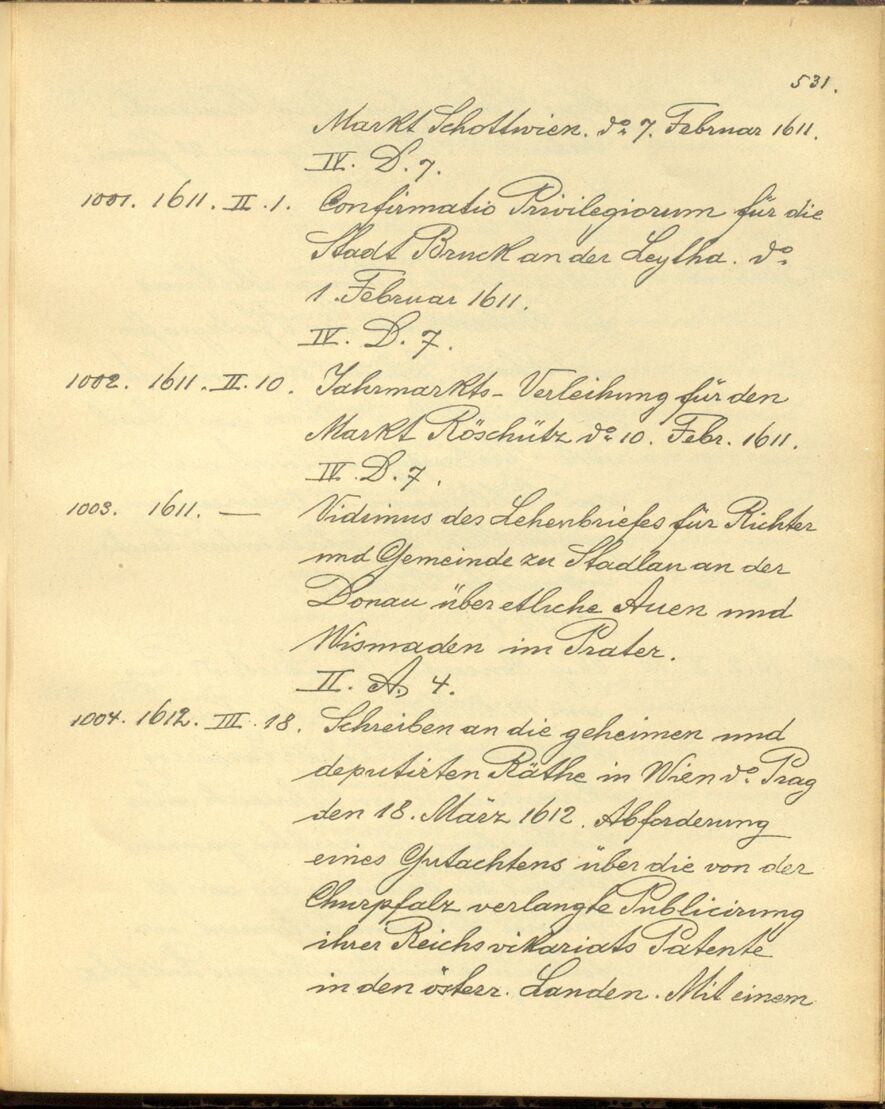 531.
Markt Schottwien. do. 7. Februar 1611.
IV. D. 7.
1001. 1611. II. 1. Confirmatio Privilegiorum für die
Stadt Bruck an der Leytha. do.
1. Februar 1611.
IV. D. 7.
1002. 1611. II. 10. Jahrmarkts-Verleihung für den
Markt Röschütz do. 10. Febr. 1611.
IV. D. 7.
1003. 1611. — Vidimus des Lehenbriefes für Richter
und Gemeinde zu Stadlau an der
Donau über etliche Auen und
Wismaden im Prater.
II. A. 4.
1004. 1612. III. 18. Schreiben an die geheimen und
deputirten Räthe in Wien do. Prag
den 18. März 1612. Abforderung
eines Gutachtens über die von der
Churpfalz verlangte Publicirung
ihrer Reichsvikariats Patente
in den österr. Landen. Mit einem